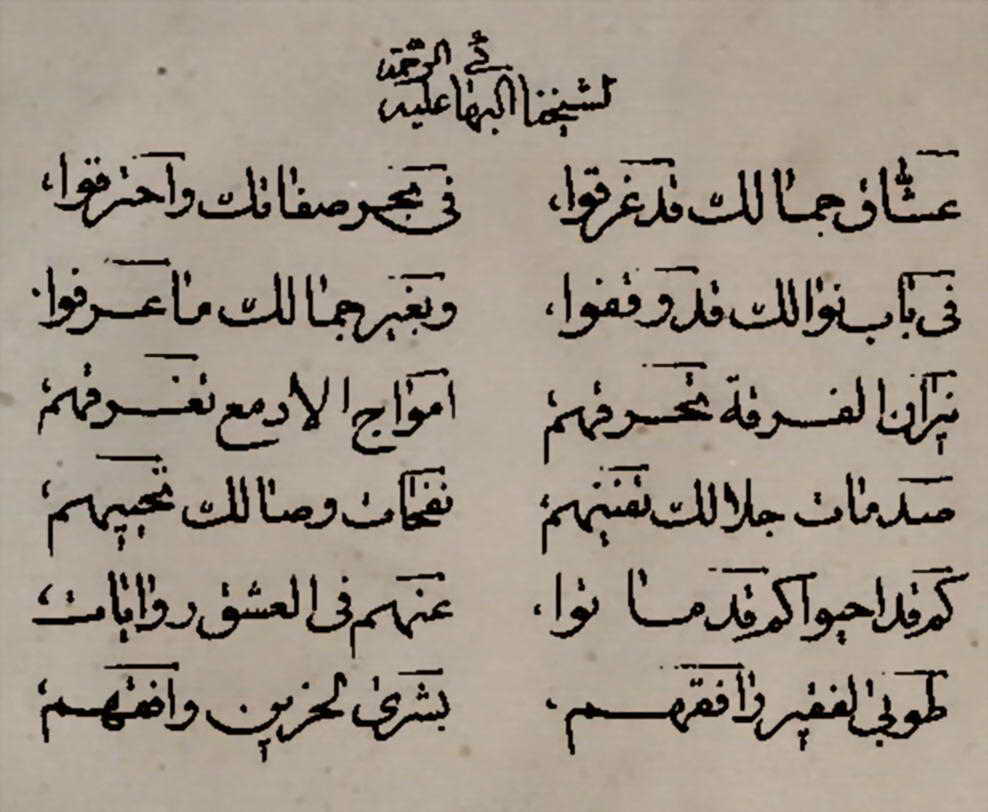 لشيخنا البهائي عليه الرحمة
عشاق جمالك قد غرقوا، في بحر صفاتك واحترقوا،
في باب نوالك قد وقفوا، وبغير جمالك ما عرفوا.
نيران الفرقة تحرقهم، امواج الادمع تغرقهم،
صدمات جلالك تفنيهم، نفحات وصالك تحييهم،
كم قد احيوا كم قد ماتوا، عنهم في العشق روايات،
طوبى لفقير وافقهم، بشرى لحزين وافقهم،